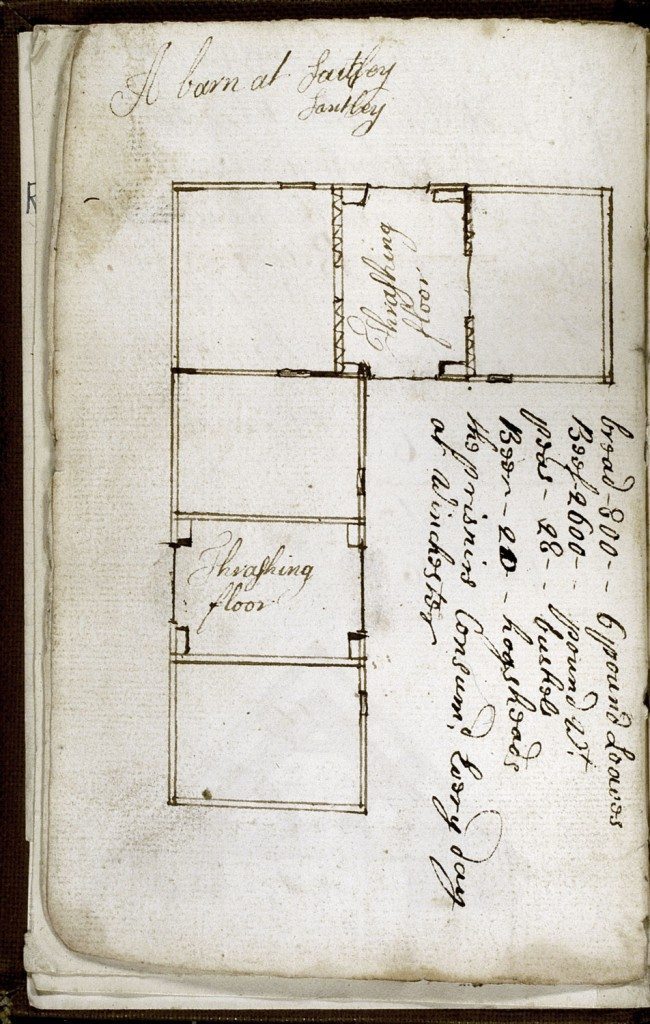 A barn at
Santley
Thrashing
floor
Thrashing
floor
bread - 800 - - 6 pound Loaves
Beef 2600 - - pound Wt
peas - 28 - - bushels
Beer - 20 - hogsheads
the prisnirs Consumd Every day
at Winchester
R